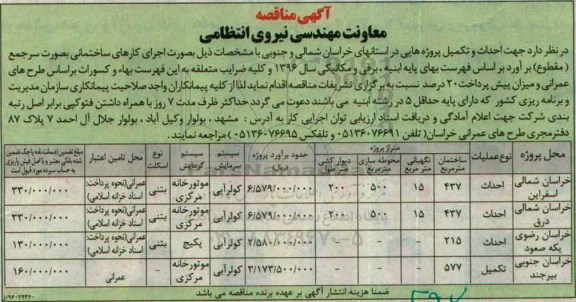 آگهی مناقصه
معاونت مهندسی نیروی انتظامی
در نظر دارد جهت احداث و تکمیل پروژه هایی در استانهای خراسان شمالی و جنوبی با مشخصات ذیل بصورت اجرای کارهای ساختمانی بصورت سرجمع
(مقطوع) بر آورد بر اساس فهرست بهای پایه ابنیه ، برقی و مکانیکی سال ۱۳۹۶ و کلیه ضرایب متعلقه به این فهرست بهاء و کسورات بر اساس طرح های
عمرانی و میزان پیش پرداخت ۲۰ درصد نسبت به برگزاری تشریفات مناقصه اقدام نماید لذا از کلیه پیمانکاران واجد صلاحیت پیمانکاری سازمان مدیریت
و برنامه ریزی کشور که دارای پایه حداقل ۵ در رشته ابنیه می باشند دعوت می گردد حداکثر ظرف مدت ۷ روز با همراه داشتن فتوکپی برابر اصل رتبه
بندی شرکت جهت اعلام آمادگی و دریافت اسناد ارزیابی توان اجرایی کار به آدرس : مشهد ، بولوار وکیل آباد ، بولوار جلال آل احمد ۷ پلاک ۸۷
دفتر مجری طرح های عمرانی خراسان ( تلفن ۰۵۱۳۶۰۷۶۶۹۱ و تلفکس ۰۵۱۳۶۰۷۶۶۹۵ ) مراجعه نمایند .
محل پروژه نوع عملیات متراژ پروژه حدود برآورد پروژه ریال سیستم سرمایش سیستم گرمایش نوع اسکلت محل تامین اعتبار
ساختمان متر مربع نگهبانی متر مربع محوطه سازی متر مربع دیوار کشی متر طول
خراسان شمالی اسفراین احداث ۴۳۷ ۱۵ ۵۰۰ ۲۰۰ ۶/۵۷۹/۰۰۰/۰۰۰ کولر آبی موتورخانه مرکزی بتنی عمرانی (نحوه پرداخت: اسناد خزانه اسلامی) ۳۳۰/۰۰۰/۰۰۰
خراسان شمالی درق احداث ۴۳۷ ۱۵ ۵۰۰ ۲۰۰ ۶/۵۷۹/۰۰۰/۰۰۰ کولر آبی موتورخانه مرکزی بتنی عمرانی (نحوه پرداخت: اسناد خزانه اسلامی) ۳۳۰/۰۰۰/۰۰۰
خراسان رضوی یکه صعود احداث ۲۱۵ - - - ۲/۵۸۰/۰۰۰/۰۰۰ کولر آبی پکیج بتنی عمرانی (نحوه پرداخت: اسناد خزانه اسلامی) ۱۳۰/۰۰۰/۰۰۰
خراسان جنوبی بیرجند تکمیل ۵۷۷ - - - ۳/۱۷۳/۵۰۰/۰۰۰ کولر آبی موتورخانه مرکزی - عمرانی ۱۶۰/۰۰۰/۰۰۰
ضمنا هزینه انتشار آگهی بر عهده برنده مناقصه می باشد